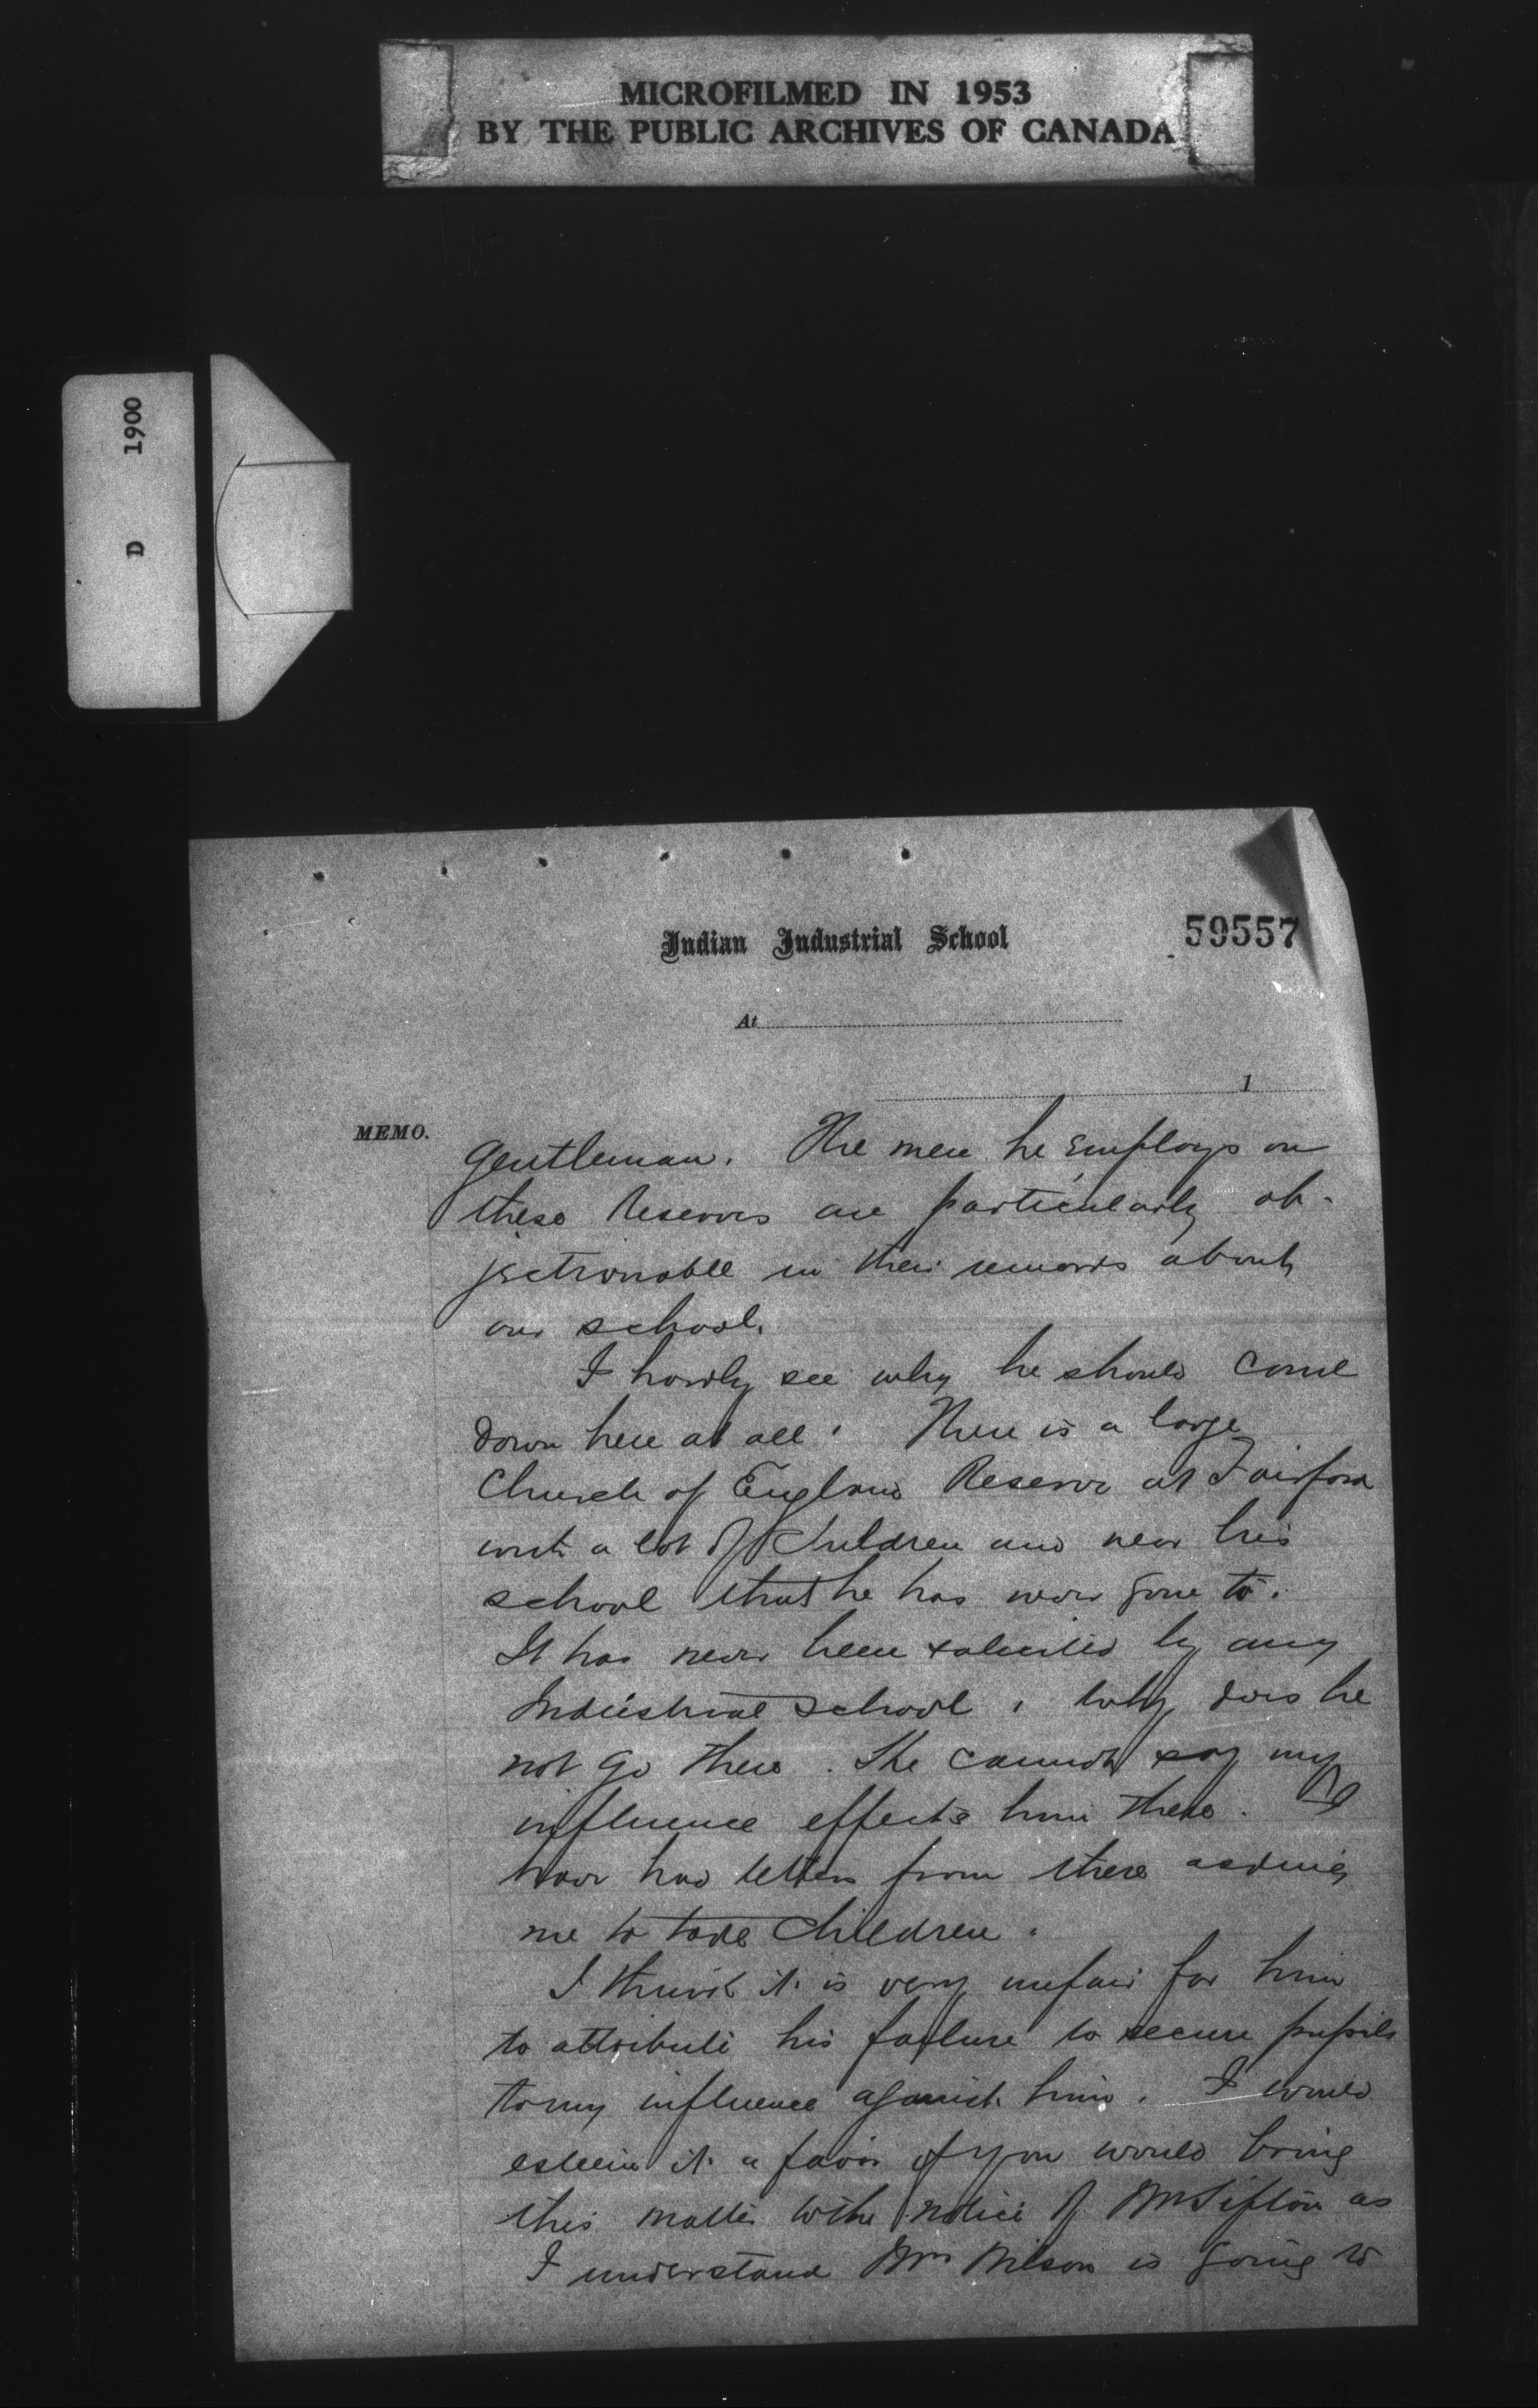 MICROFILMED IN 1953
BY THE PUBLIC ARCHIVES OF CANADA
D 1900
Indian Industrial School
59557
At
1
MEMO.
Gentleman. The men he employs on
these Reserves are particularly ob-
jectionable in their remarks about
our school.
I hardly see why he should come
down here at all. There is a large
Church of England Reserve at Fairford
with a lot of children and near his
school that he has never gone to.
It has never been solicited by any
Industrial School. Why does he
not go there. He cannot say my
influence effects him there. I
have had letters from there asking
me to take children.
I think it is very unfair for him
to attribute his failure to secure pupils
to my influence against him. I would
esteem it a favor if you would bring
this matter to the notice of Mr Sifton as
I understand Mr Wilson is going to